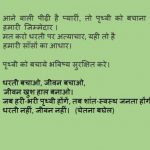 आने वाली पीढ़ी है प्यारी, तो पृथ्वी को बचाना
हमारी जिम्मेदार ।
मत करो धरती पर अत्याचार, यही तो है
हमारी साँसों का आधार।
पृथ्वी को बचाये भविष्य सुरक्षित करें।
धरती बचाओ, जीवन बचाओ,
जीवन खुश हाल बनाओ।
जब हरी-भरी पृथ्वी होंगे, तब शांत-स्वस्थ जनता होंगे
धरती नहीं, जीवन नहीं। (चेतना बघेल)